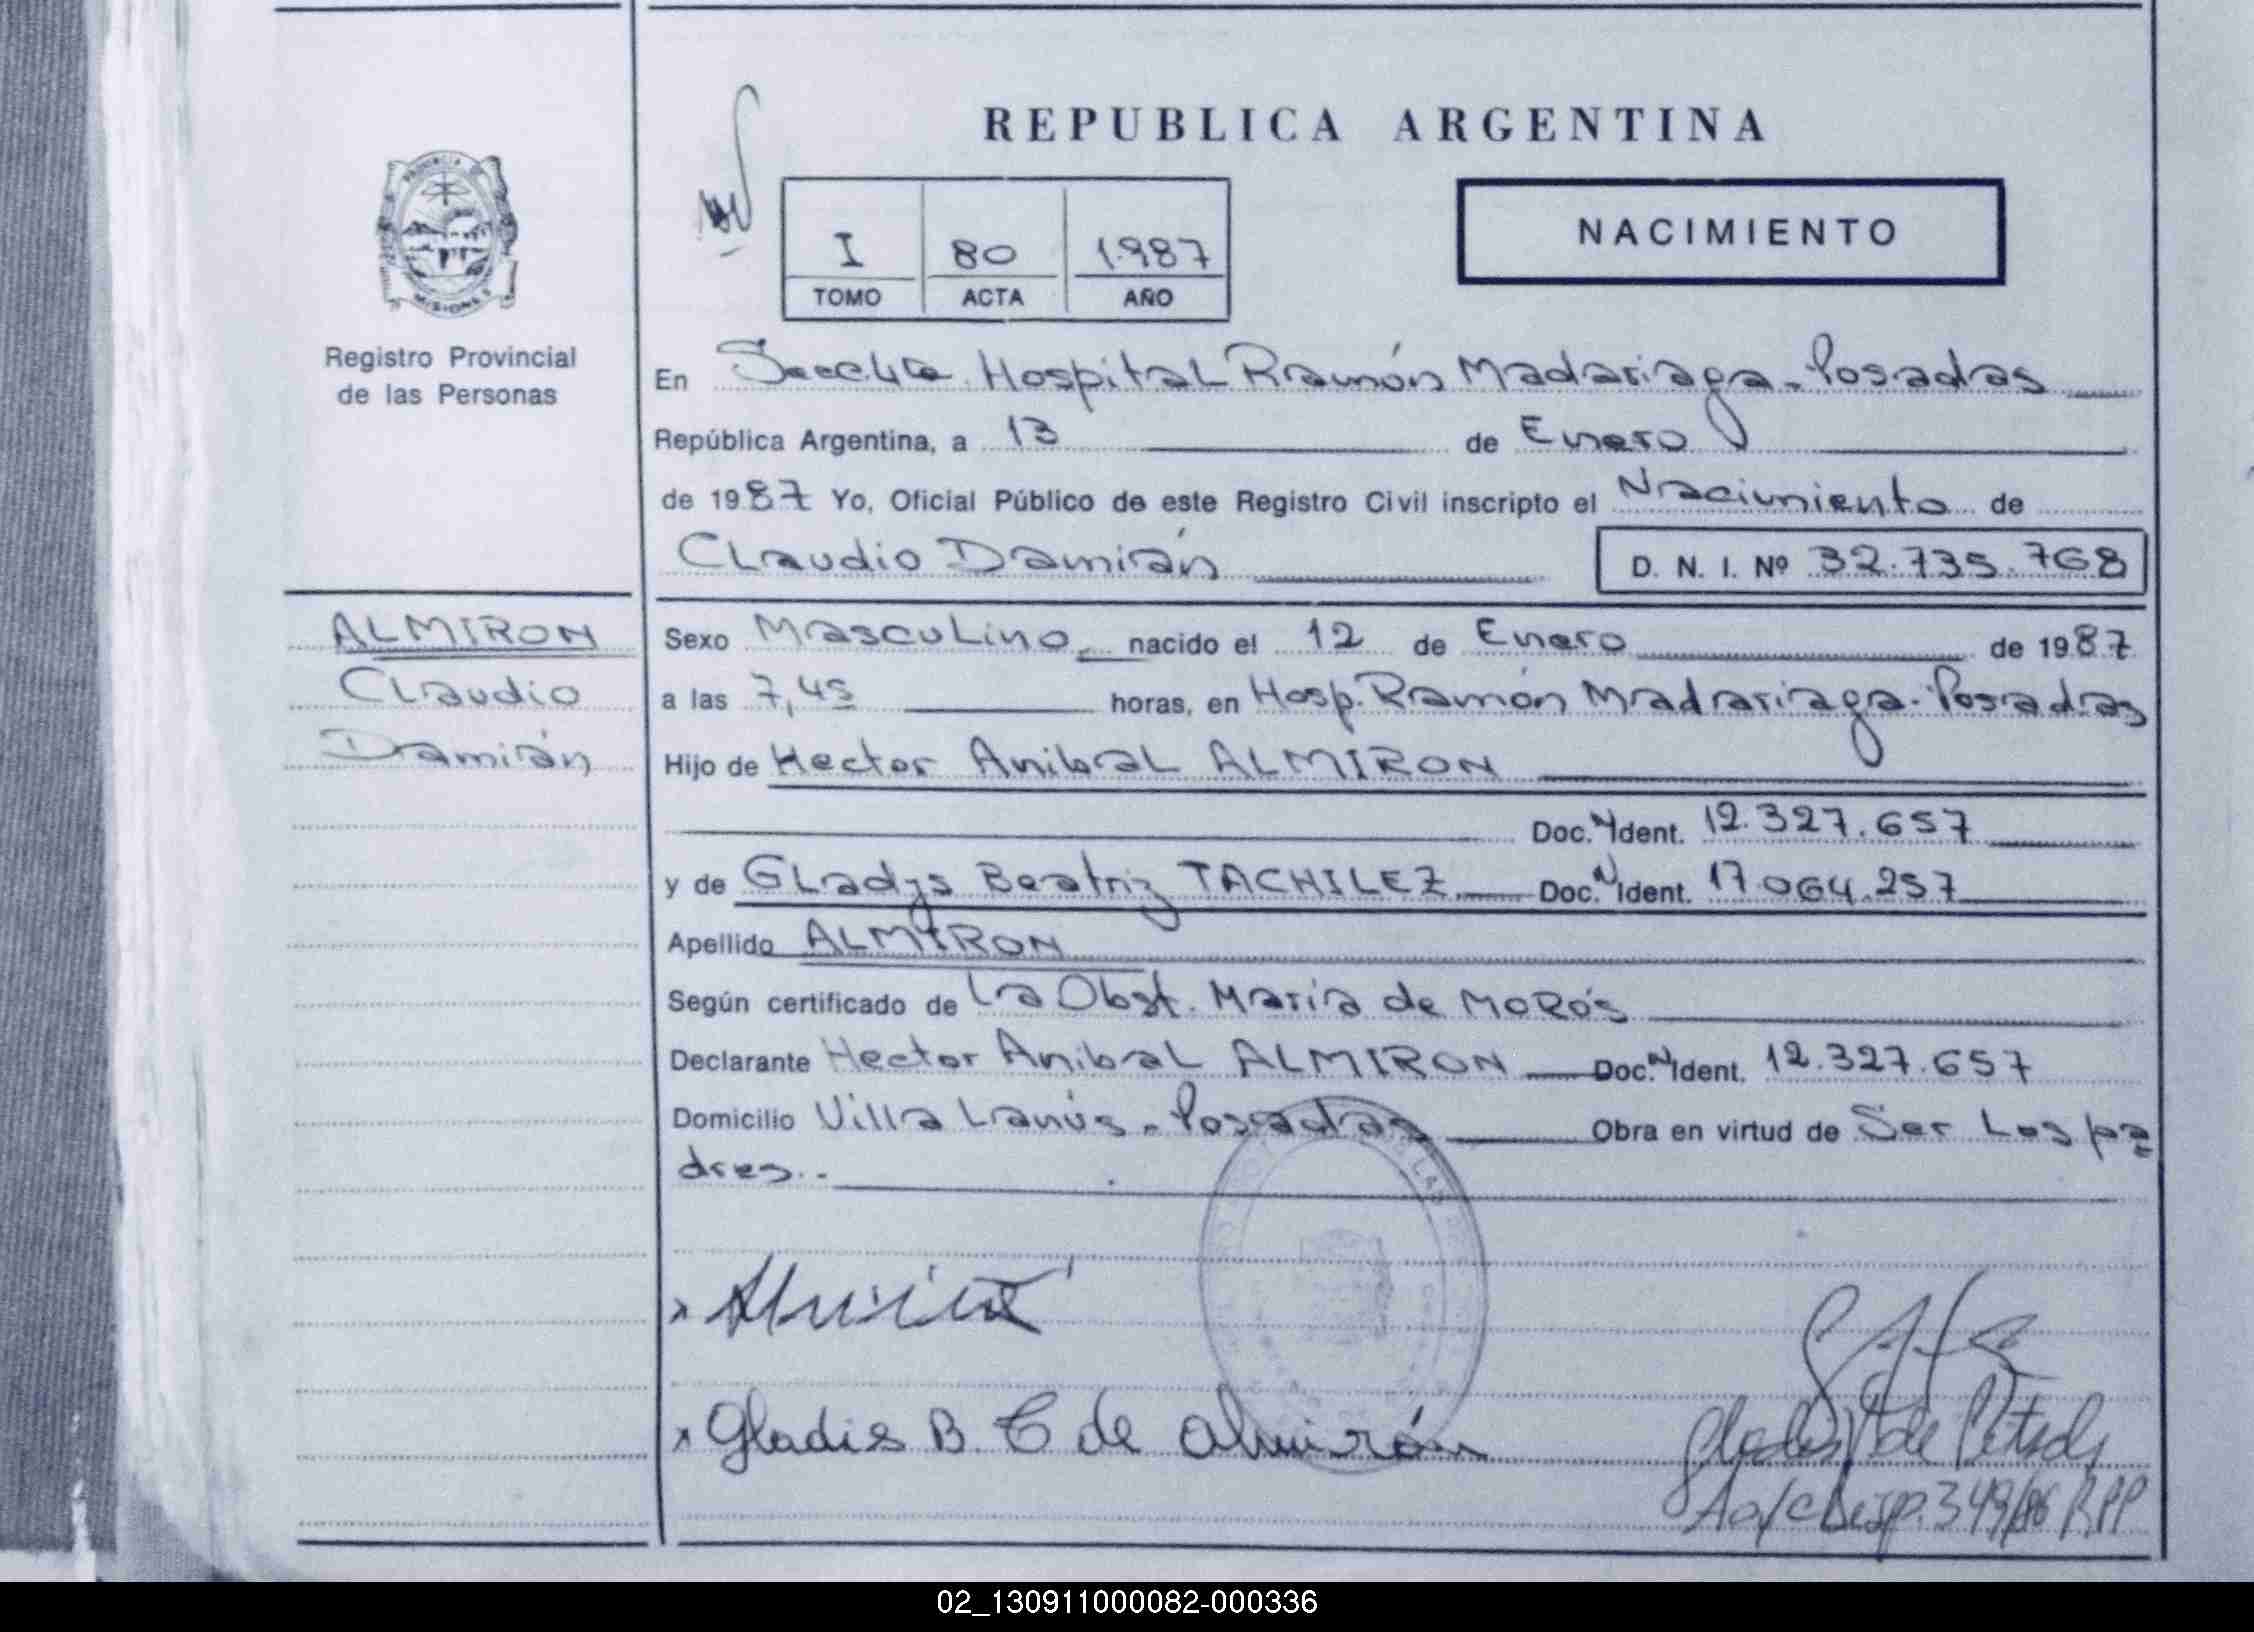 REPUBLICA ARGENTINA
NACIMIENTO
I 80 1.987
TOMO ACTA AÑO
PROVINCIA
MISIONES
Registro Provincial
de las Personas
En Hospital Ramón Madariaga - Posadas
República Argentina, a 13 de Enero
de 1987 Yo, Oficial Público de este Registro Civil inscripto el Nacimiento de
Claudio Damián D. N. I. Nº 32.735.768
ALMIRON
Claudio
Damián
Sexo Masculino nacido el 12 de Enero de 1987
a las 7,45 horas, en Hosp. Ramón Madariaga - Posadas
Hijo de Hector Anibal ALMIRON
Doc. N Ident. 12.327.657
y de Gladys Beatriz TACHILEZ Doc. N Ident. 17.064.257
Apellido ALMIRON
Según certificado de La Obst. María de Morós
Declarante Hector Anibal ALMIRON Doc. N Ident. 12.327.657
Domicilio Villa Lanús - Posadas Obra en virtud de Ser Los pa
dres.-
Gladis B. T de Almirón
de
A/c Disp. 349/86 RPP
02_130911000082-000336